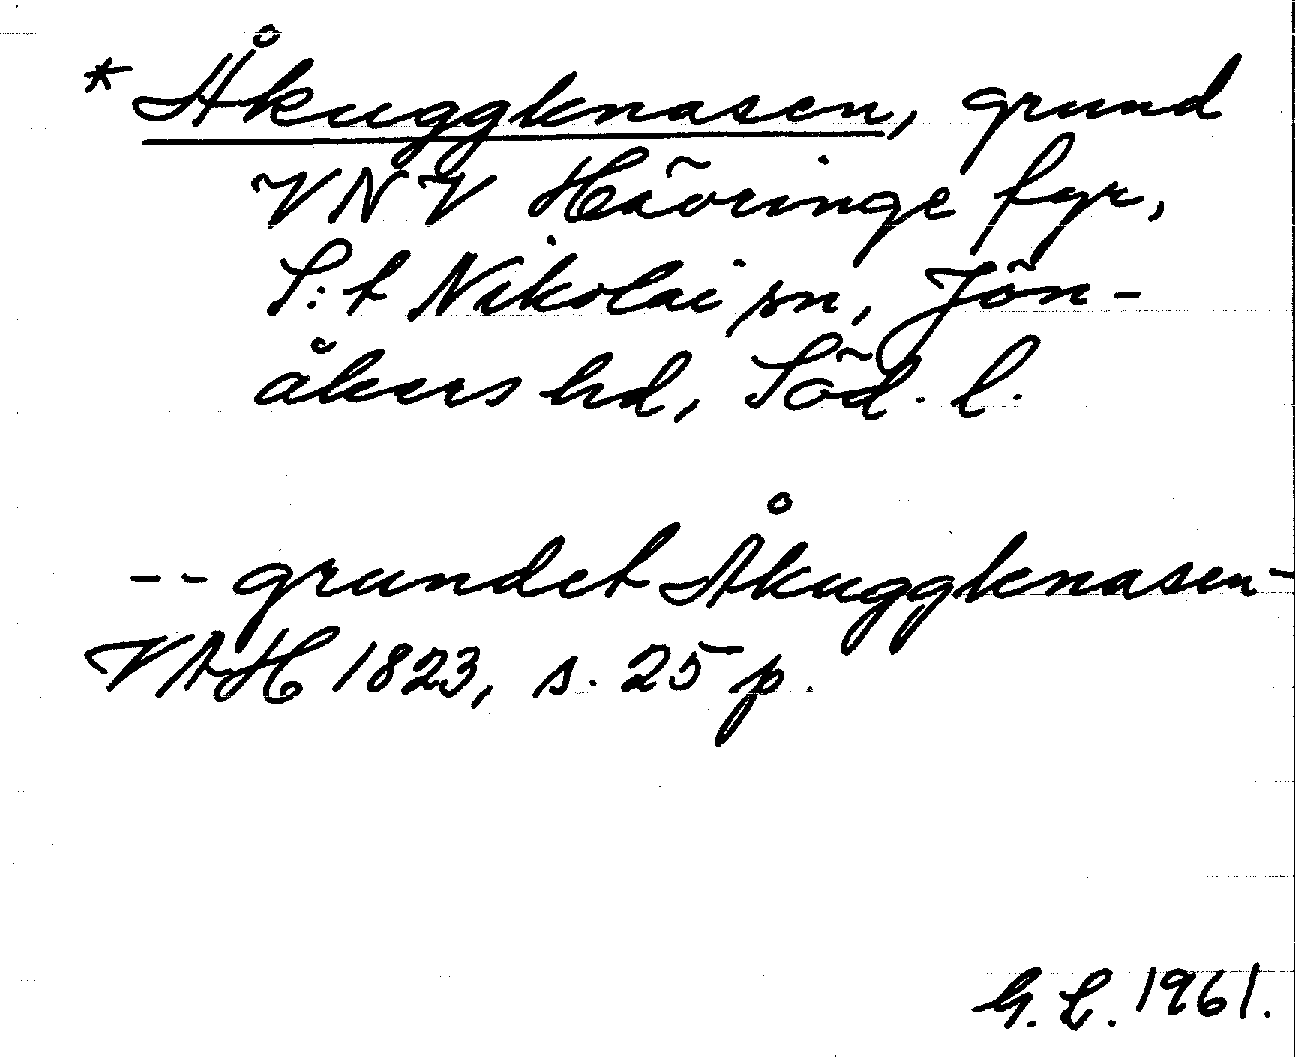 * Åkuggknasen, grund
VNV Hävringe fyr,
S:t Nikolai sn, Jön-
åkers hd, Söd. l.
-- grundet Åkuggknasen -
VAH 1823, s. 25 p.
G. L. 1961.